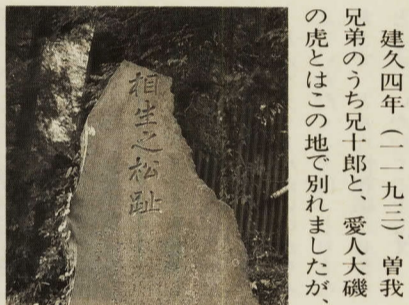 建久四年（一一九三）、曽我
兄弟のうち兄十郎と、愛人大磯
の虎とはこの地で別れましたが、
相生之松趾